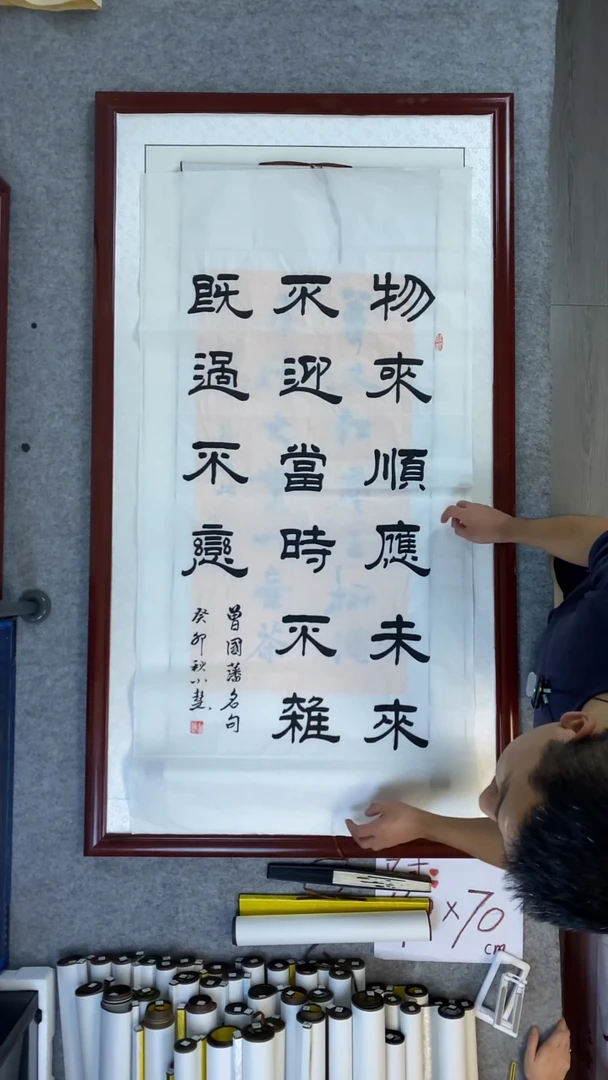 物來順應未來
不迎當時不雜
既過不戀
曾國藩名句
癸卯秋小
×70
cm